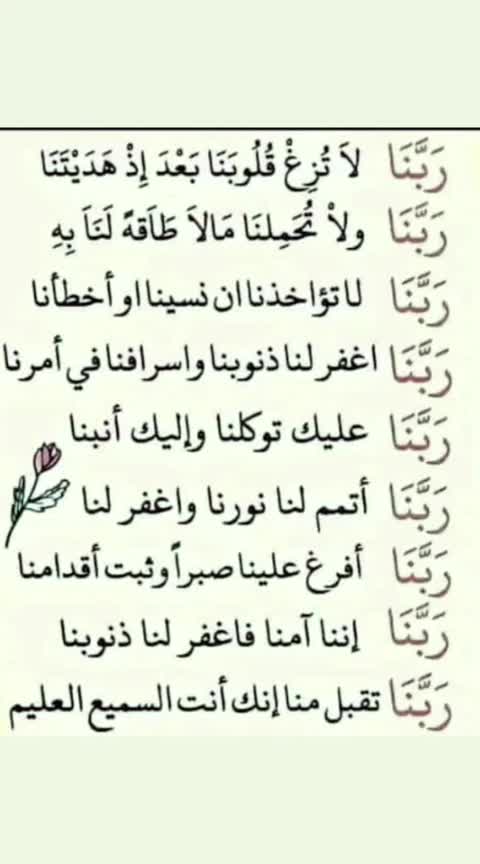 رَبَّنَا لاَ تُزِغْ قُلُوبَنَا بَعْدَ إِذْ هَدَيْتَنَا
رَبَّنَا ولاْ تُحَمِلنَا مَالاَ طَاَقهً لَنَاَ بِهِ
رَبَّنَا لا تؤاخذنا ان نسينا او أخطأنا
رَبَّنَا اغفر لنا ذنوبنا واسرافنا في أمرنا
رَبَّنَا عليك توكلنا وإليك أنبنا
رَبَّنَا أتمم لنا نورنا واغفر لنا
رَبَّنَا أفرغ علينا صبراً وثبت أقدامنا
رَبَّنَا إننا آمنا فاغفر لنا ذنوبنا
رَبَّنَا تقبل منا إنك أنت السميع العليم